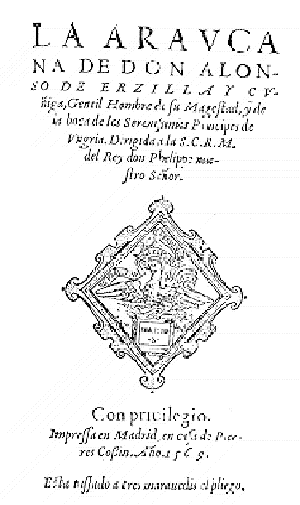 LA ARAVCA
NA DE DON ALON-
SO DE ERZILLA Y CV-
ñiga, Gentil Hombre de su Magestad, y de
la boca de los Serenissimos Principes de
Vngria. Dirigida a la S.C.R.M.
del Rey don Phelippe nue-
stro Señor.
Con priuilegio.
Impressa en Madrid, en casa de Pier-
res Cossin. Año. 1569.
Esta tassado a tres marauedis el pliego.